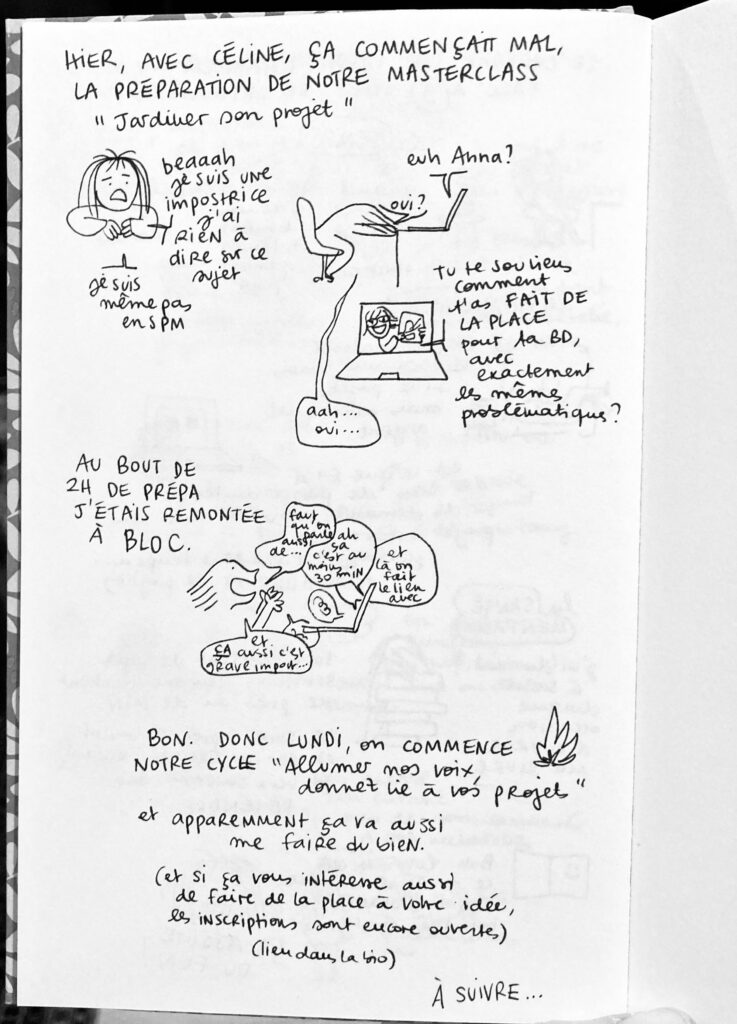 HIER, AVEC CÉLINE, ÇA COMMENÇAIT MAL,
LA PRÉPARATION DE NOTRE MASTERCLASS
"Jardiner son projet"
beaaah
je suis UNE
IMPOSTRICE
j'ai
RIEN à
dire sur ce
sujet
je suis
même pas
en SPM
euh Anna?
oui?
Tu te souviens
comment
t'as FAIT DE
LA PLACE
pour ta BD,
avec
exactement
les mêmes
problématiques?
aah...
oui...
AU BOUT DE
2H DE PRÉPA
J'ÉTAIS REMONTÉE
À BLOC.
faut
qu'on
parle
aussi
de...
ah
ça
c'est au
moins
30 MIN
et
là on
fait
le lien
avec
et
ÇA aussi c'est
grave import...
BON. DONC LUNDI, on COMMENCE
NOTRE CYCLE "Allumer nos voix,
donnez vie à vos projets"
et apparemment ça va aussi
me faire du bien.
(et si ça vous intéresse aussi
de faire de la place à votre idée,
les inscriptions sont encore ouvertes)
(lien dans la bio)
À SUIVRE...